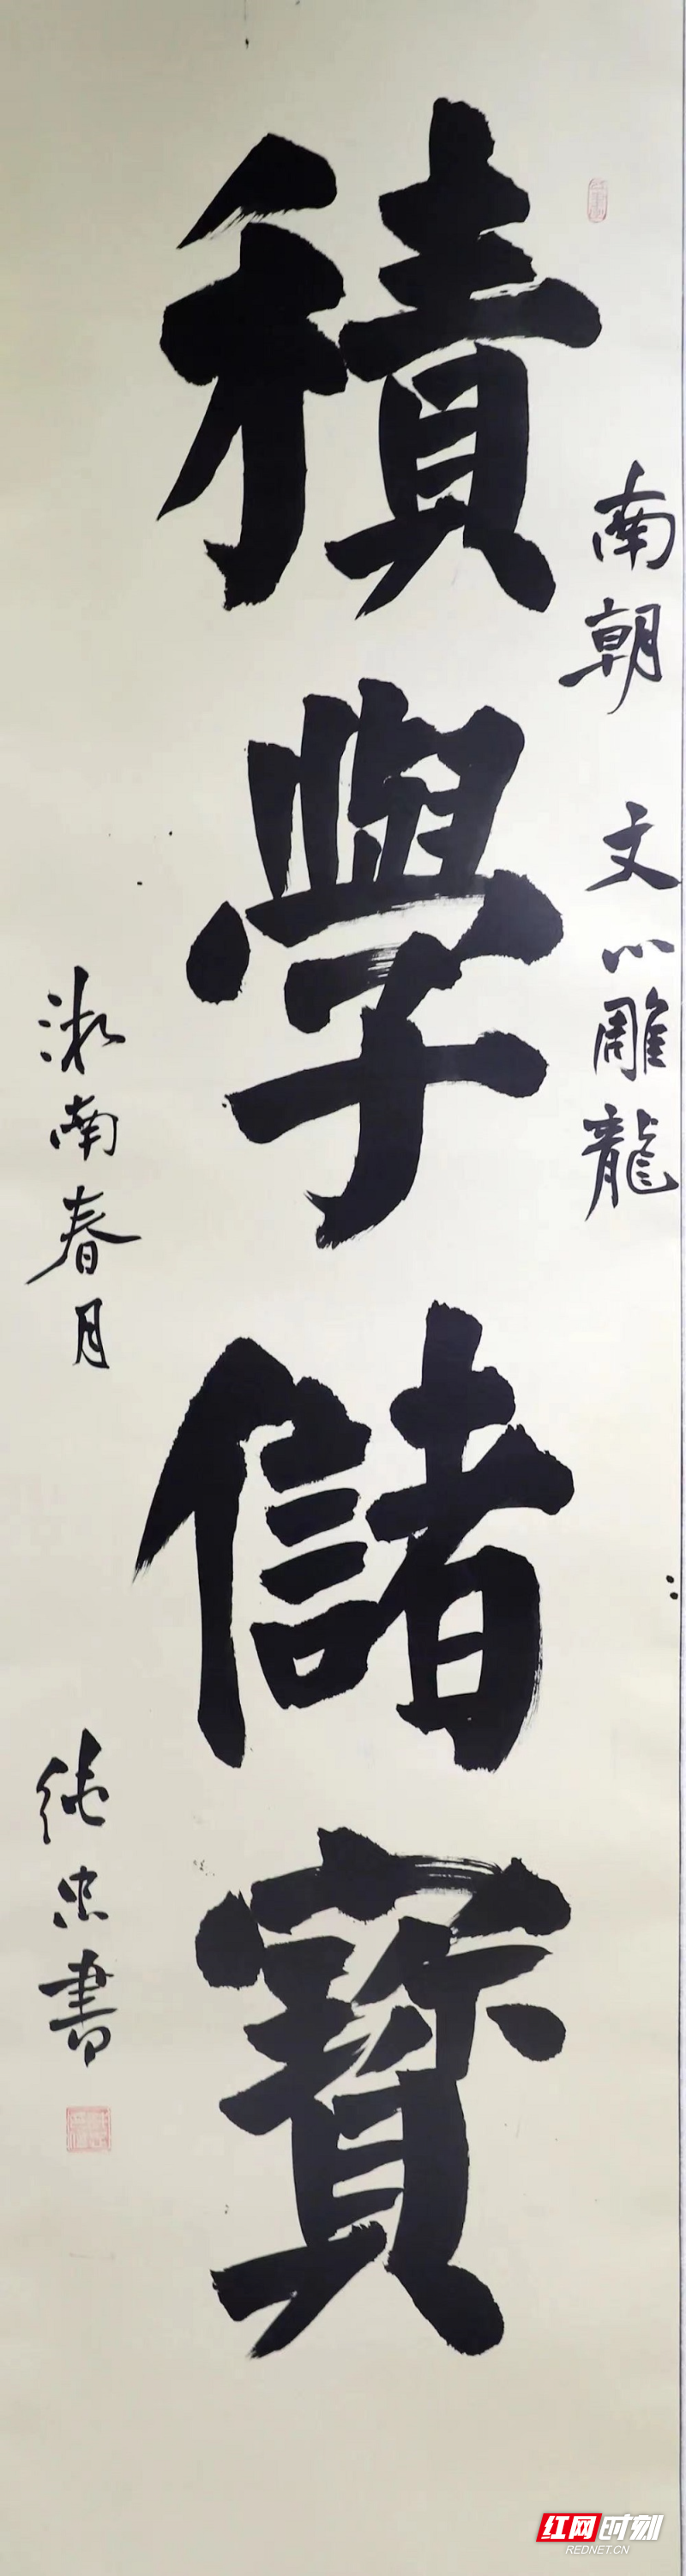 積學儲寶
南朝 文心雕龍
湘南春月
純忠書
红网时刻
REDNET.CN